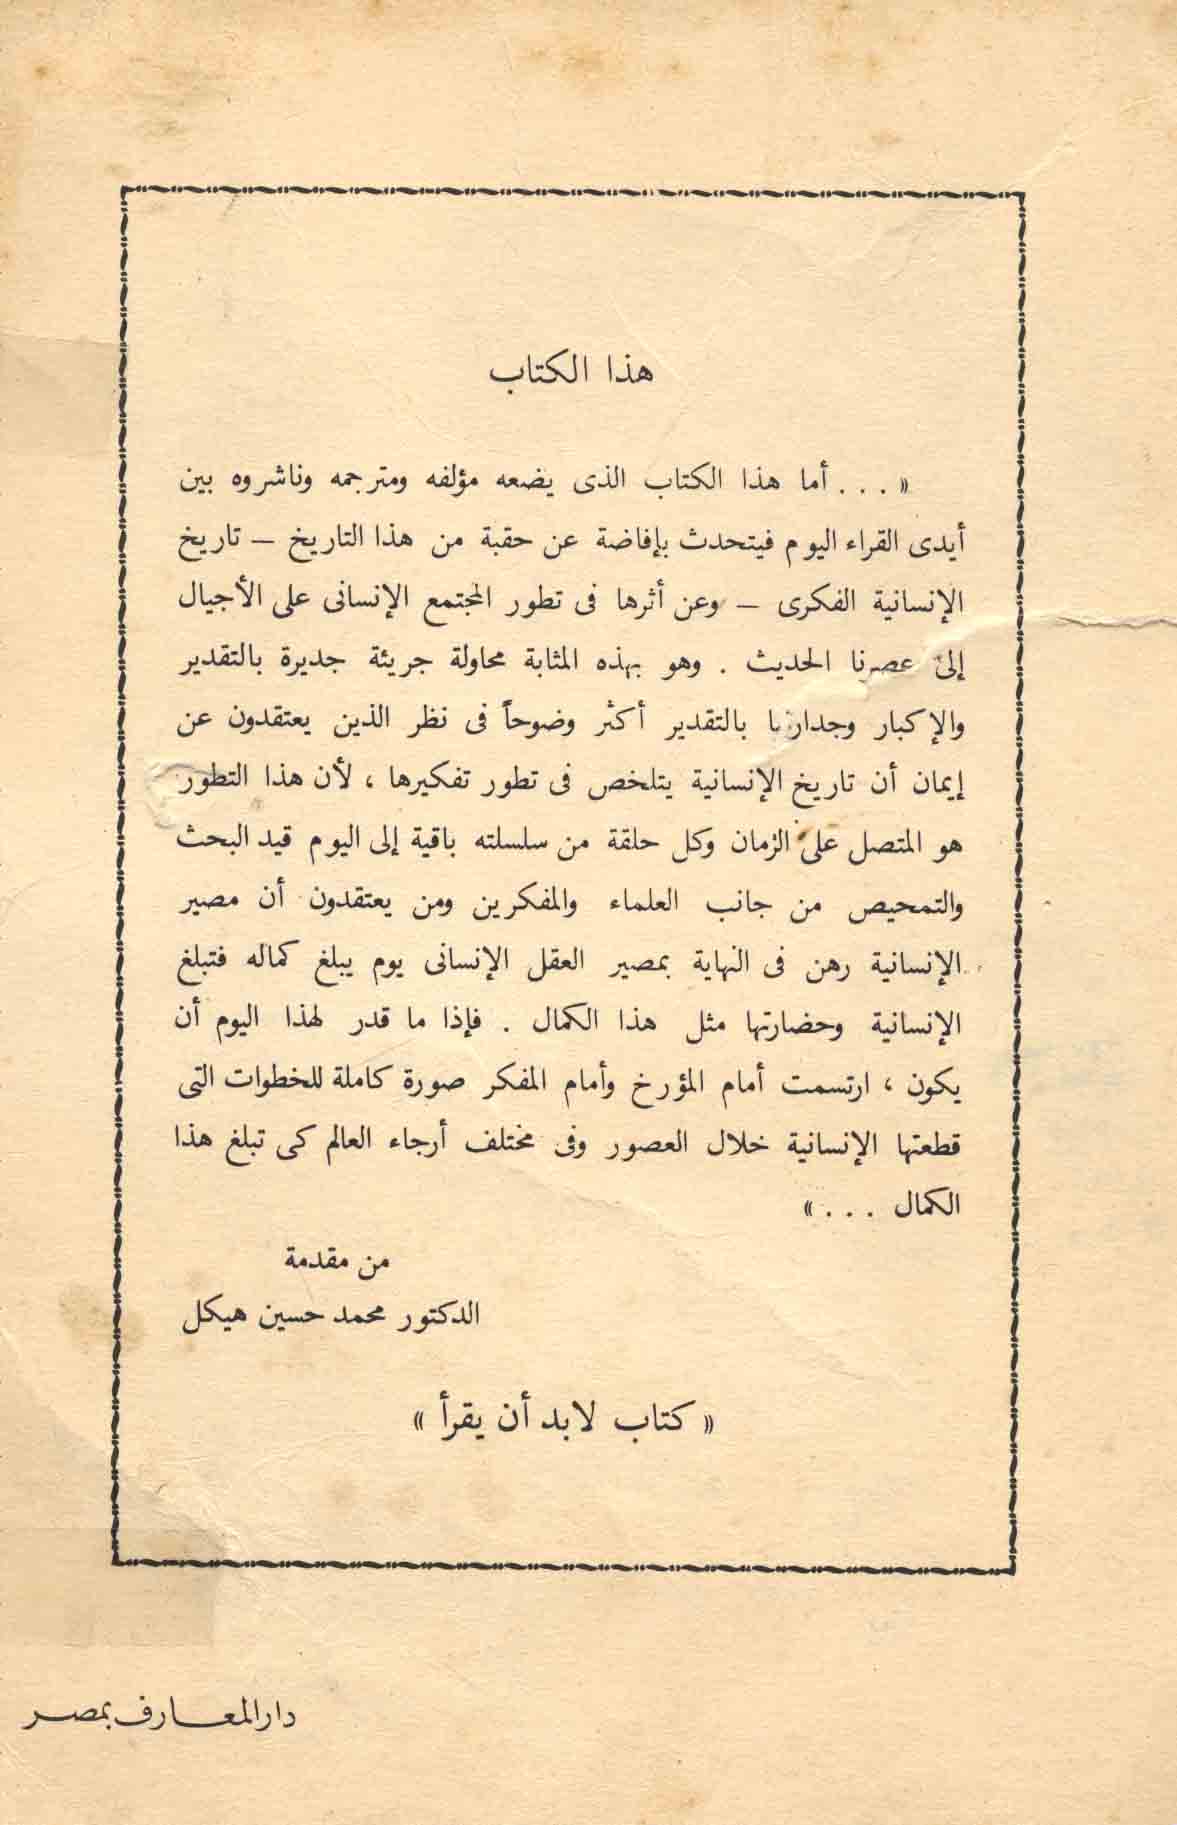 هذا الكتاب
« . . . أما هذا الكتاب الذى يضعه مؤلفه ومترجمه وناشروه بين
أيدى القراء اليوم فيتحدث بإفاضة عن حقبة من هذا التاريخ – تاريخ
الإنسانية الفكرى – وعن أثرها فى تطور المجتمع الإنسانى على الأجيال
إلى عصرنا الحديث . وهو بهذه المثابة محاولة جريئة جديرة بالتقدير
والإكبار وجدارتها بالتقدير أكثر وضوحاً فى نظر الذين يعتقدون عن
إيمان أن تاريخ الإنسانية يتلخص فى تطور تفكيرها ، لأن هذا التطور
هو المتصل على الزمان وكل حلقة من سلسلته باقية إلى اليوم قيد البحث
والتمحيص من جانب العلماء والمفكرين ومن يعتقدون أن مصير
الإنسانية رهن فى النهاية بمصير العقل الإنسانى يوم يبلغ كماله فتبلغ
الإنسانية وحضارتها مثل هذا الكمال . فإذا ما قدر لهذا اليوم أن
يكون ، ارتسمت أمام المؤرخ وأمام المفكر صورة كاملة للخطوات التى
قطعتها الإنسانية خلال العصور وفى مختلف أرجاء العالم كى تبلغ هذا
الكمال . . . »
من مقدمة
الدكتور محمد حسين هيكل
« كتاب لابد أن يقرأ »
دار المعارف بمصر